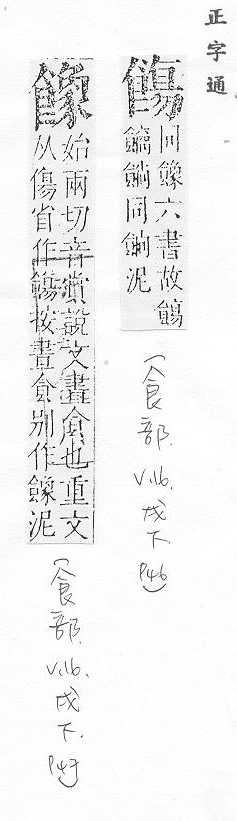 正字通
同 六書故
同餉泥
(食部. V.16. 戌下 P46)
始兩切音賞說文晝食也重文
从傷省作 按晝食別作 泥
(食部. V.16. 戌下. P47)